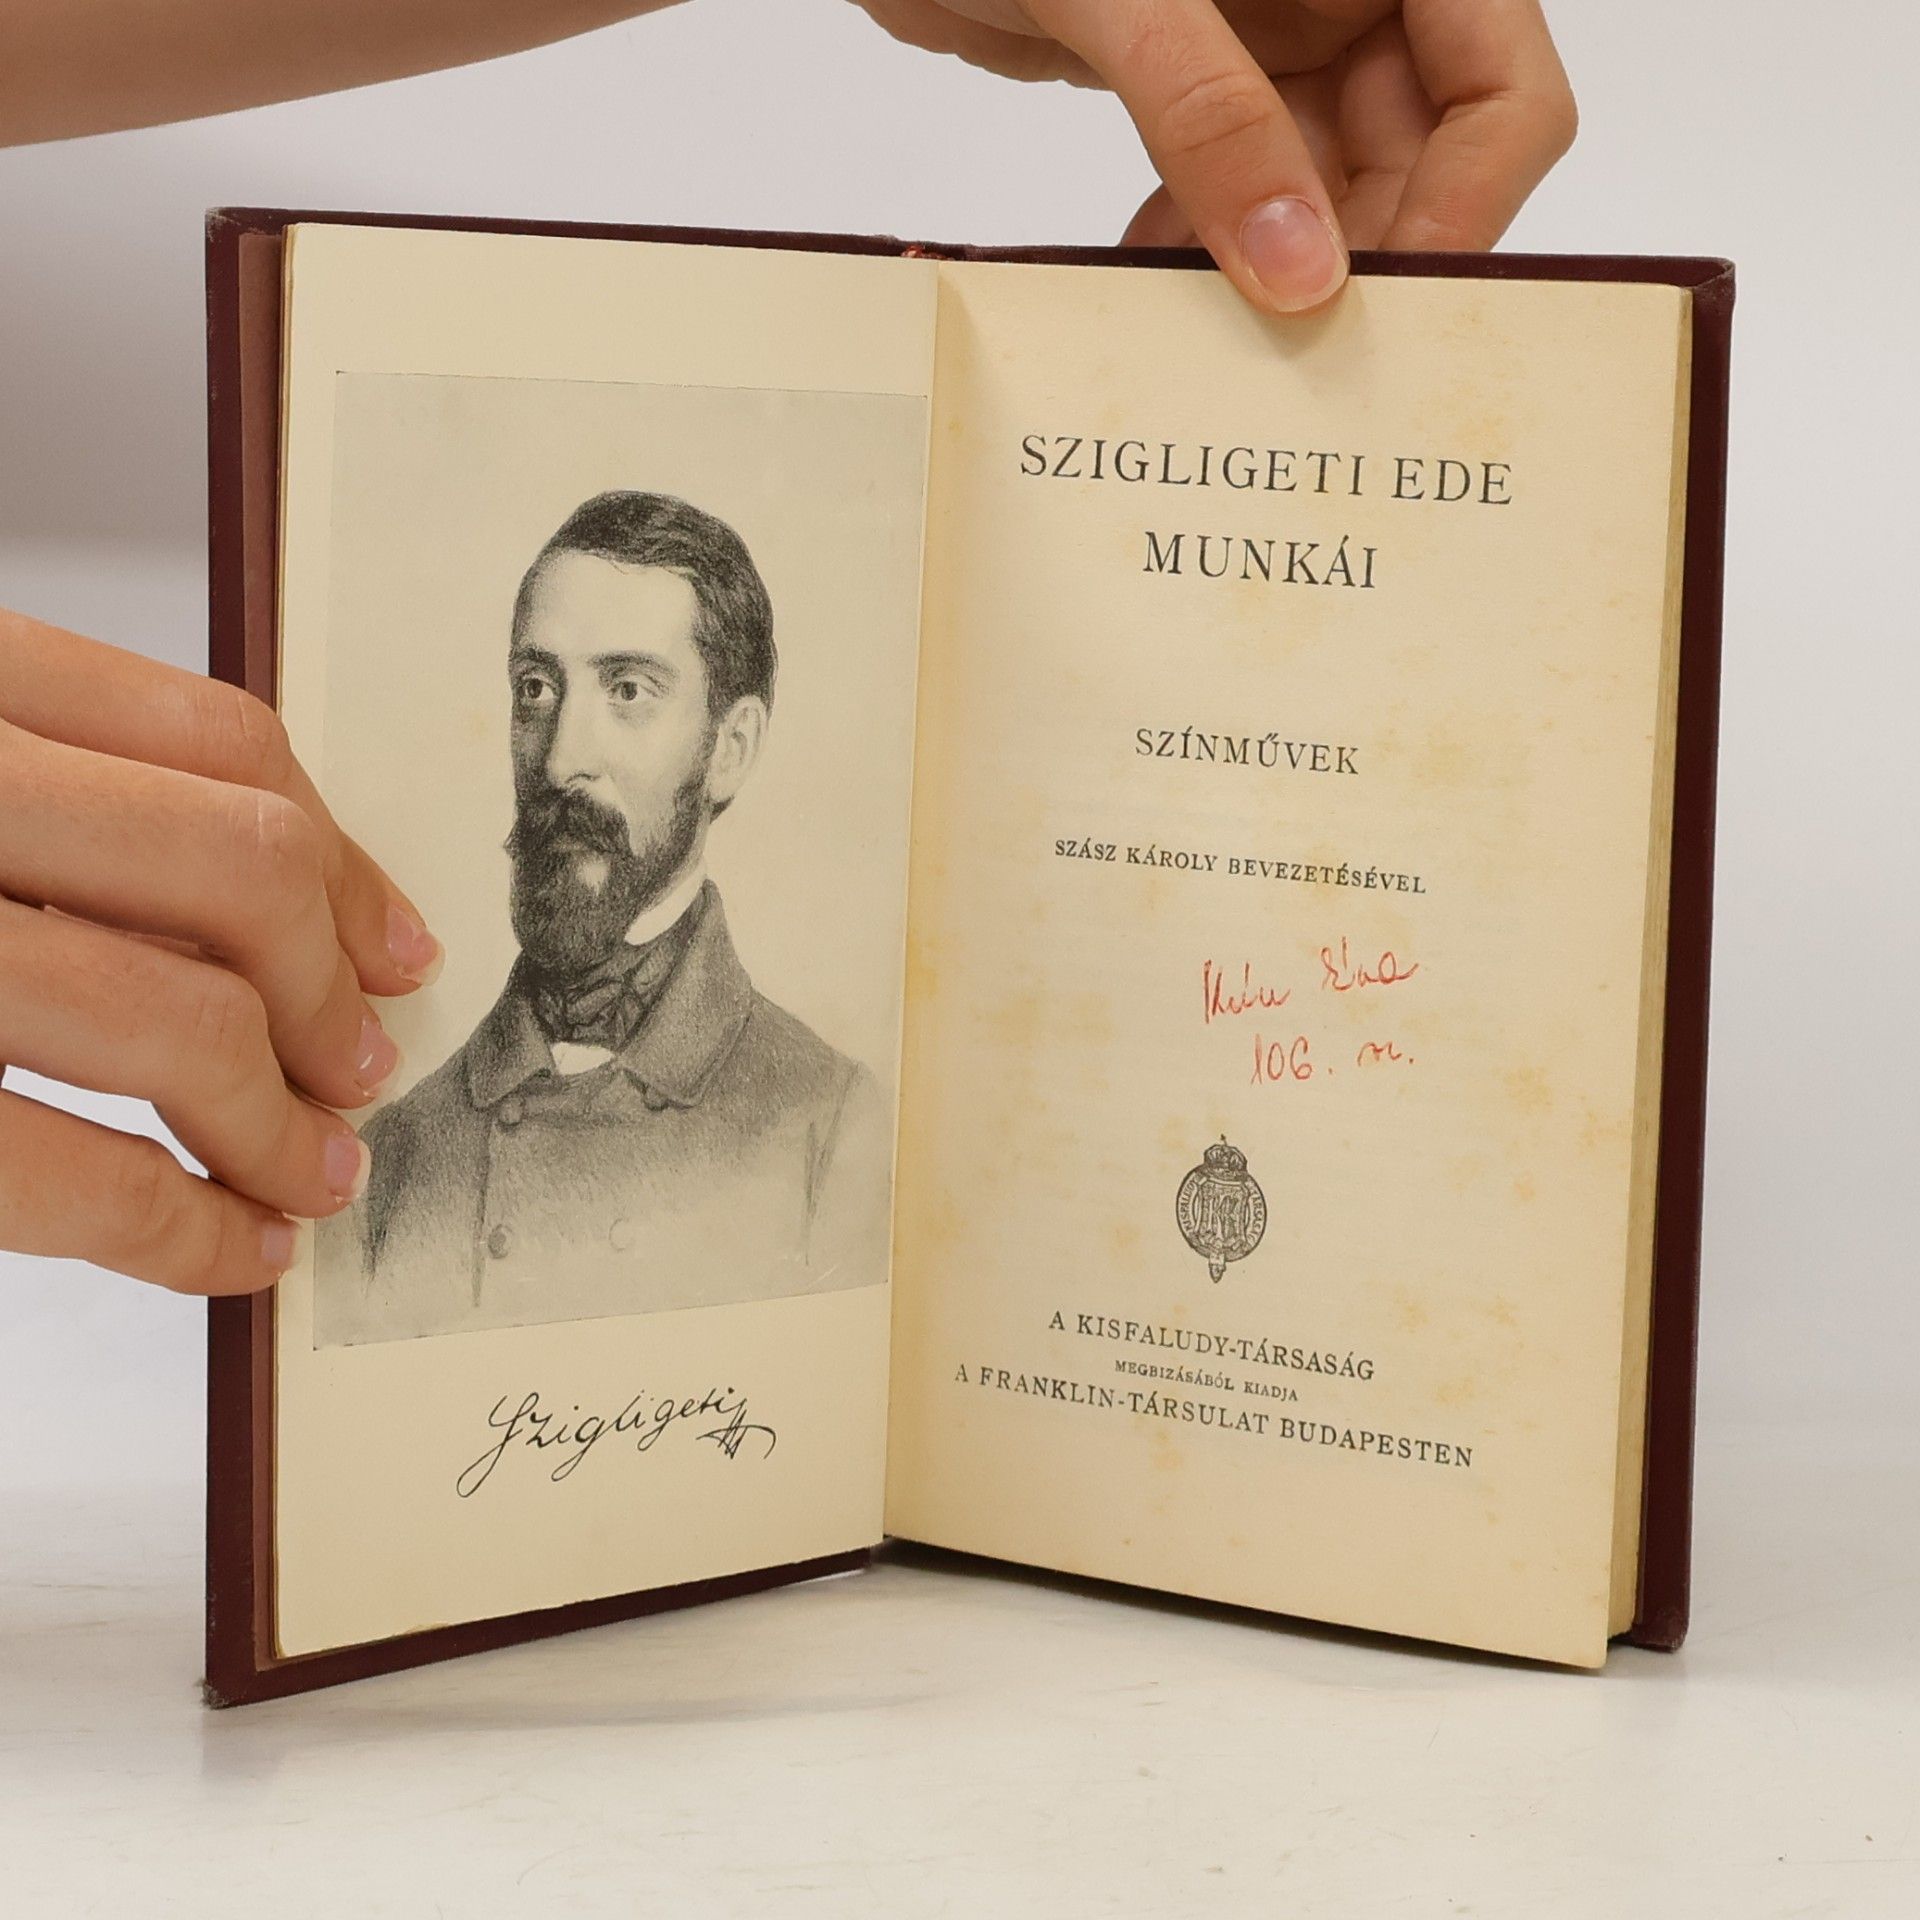 Szigligeti
SZIGLIGETI EDE
MUNKÁI
SZÍNMŰVEK
SZÁSZ KÁROLY BEVEZETÉSÉVEL
Éva
106.
KISFALUDY TÁRSASÁG
A KISFALUDY-TÁRSASÁG
MEGBIZÁSÁBÓL KIADJA
A FRANKLIN-TÁRSULAT BUDAPESTEN